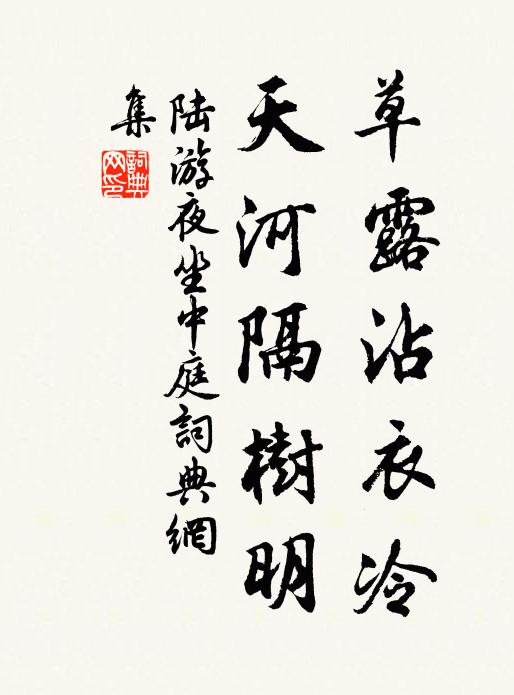 草露沾衣冷
天河隔樹明
陸游夜坐中庭詞典網
集
詞典
网印